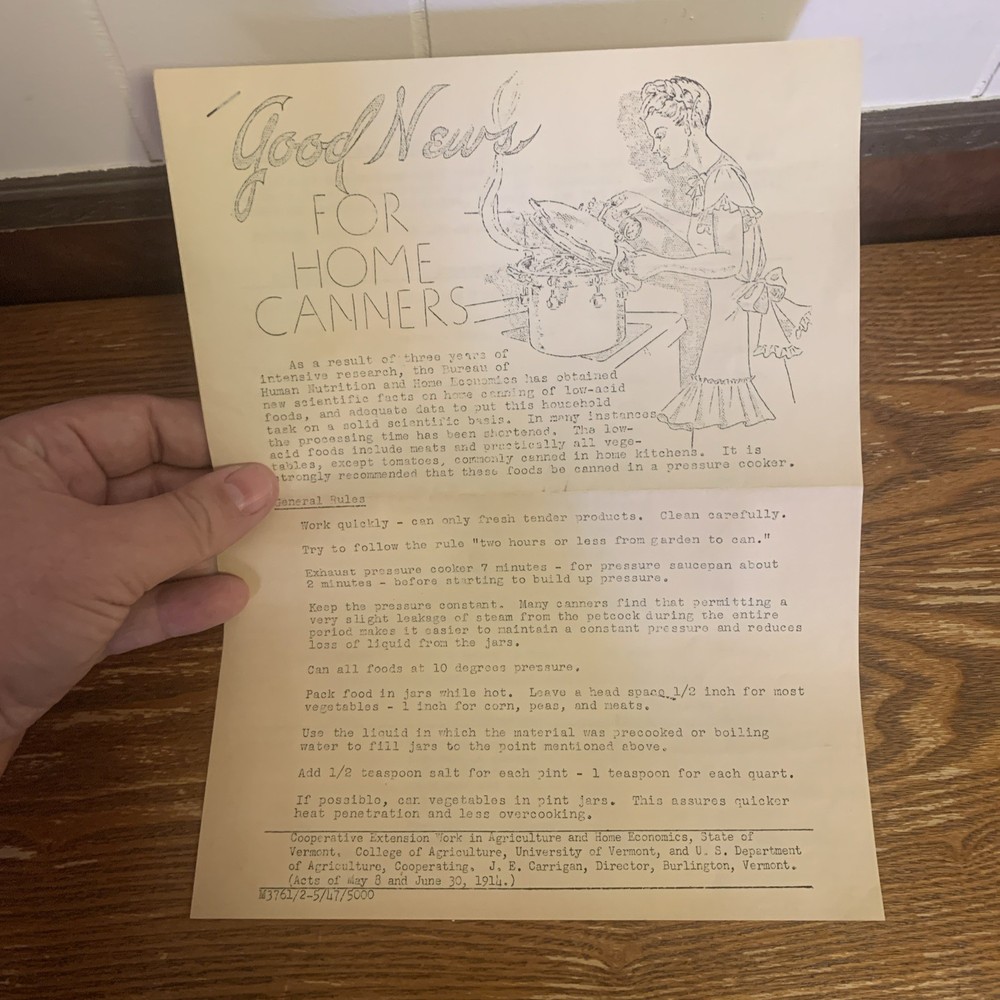 Good News
FOR
HOME
CANNERS
As a result of three years of
intensive research, the Bureau of
Human Nutrition and Home Economics has obtained
new scientific facts on home canning of low-acid
foods, and adequate data to put this household
task on a solid scientific basis. In many instances
the processing time has been shortened. The low-
acid foods include meats and practically all vege-
tables, except tomatoes, commonly canned in home kitchens. It is
strongly recommended that these foods be canned in a pressure cooker.
General Rules
Work quickly - can only fresh tender products. Clean carefully.
Try to follow the rule "two hours or less from garden to can."
Exhaust pressure cooker 7 minutes - for pressure saucepan about
2 minutes - before starting to build up pressure.
Keep the pressure constant. Many canners find that permitting a
very slight leakage of steam from the petcock during the entire
period makes it easier to maintain a constant pressure and reduces
loss of liquid from the jars.
Can all foods at 10 degrees pressure.
Pack food in jars while hot. Leave a head space 1/2 inch for most
vegetables - 1 inch for corn, peas, and meats.
Use the liquid in which the material was precooked or boiling
water to fill jars to the point mentioned above.
Add 1/2 teaspoon salt for each pint - 1 teaspoon for each quart.
If possible, can vegetables in pint jars. This assures quicker
heat penetration and less overcooking.
Cooperative Extension Work in Agriculture and Home Economics, State of
Vermont. College of Agriculture, University of Vermont, and U. S. Department
of Agriculture, Cooperating. J. E. Carrigan, Director, Burlington, Vermont.
(Acts of May 8 and June 30, 1914.)
M3761/2-5/47/5000